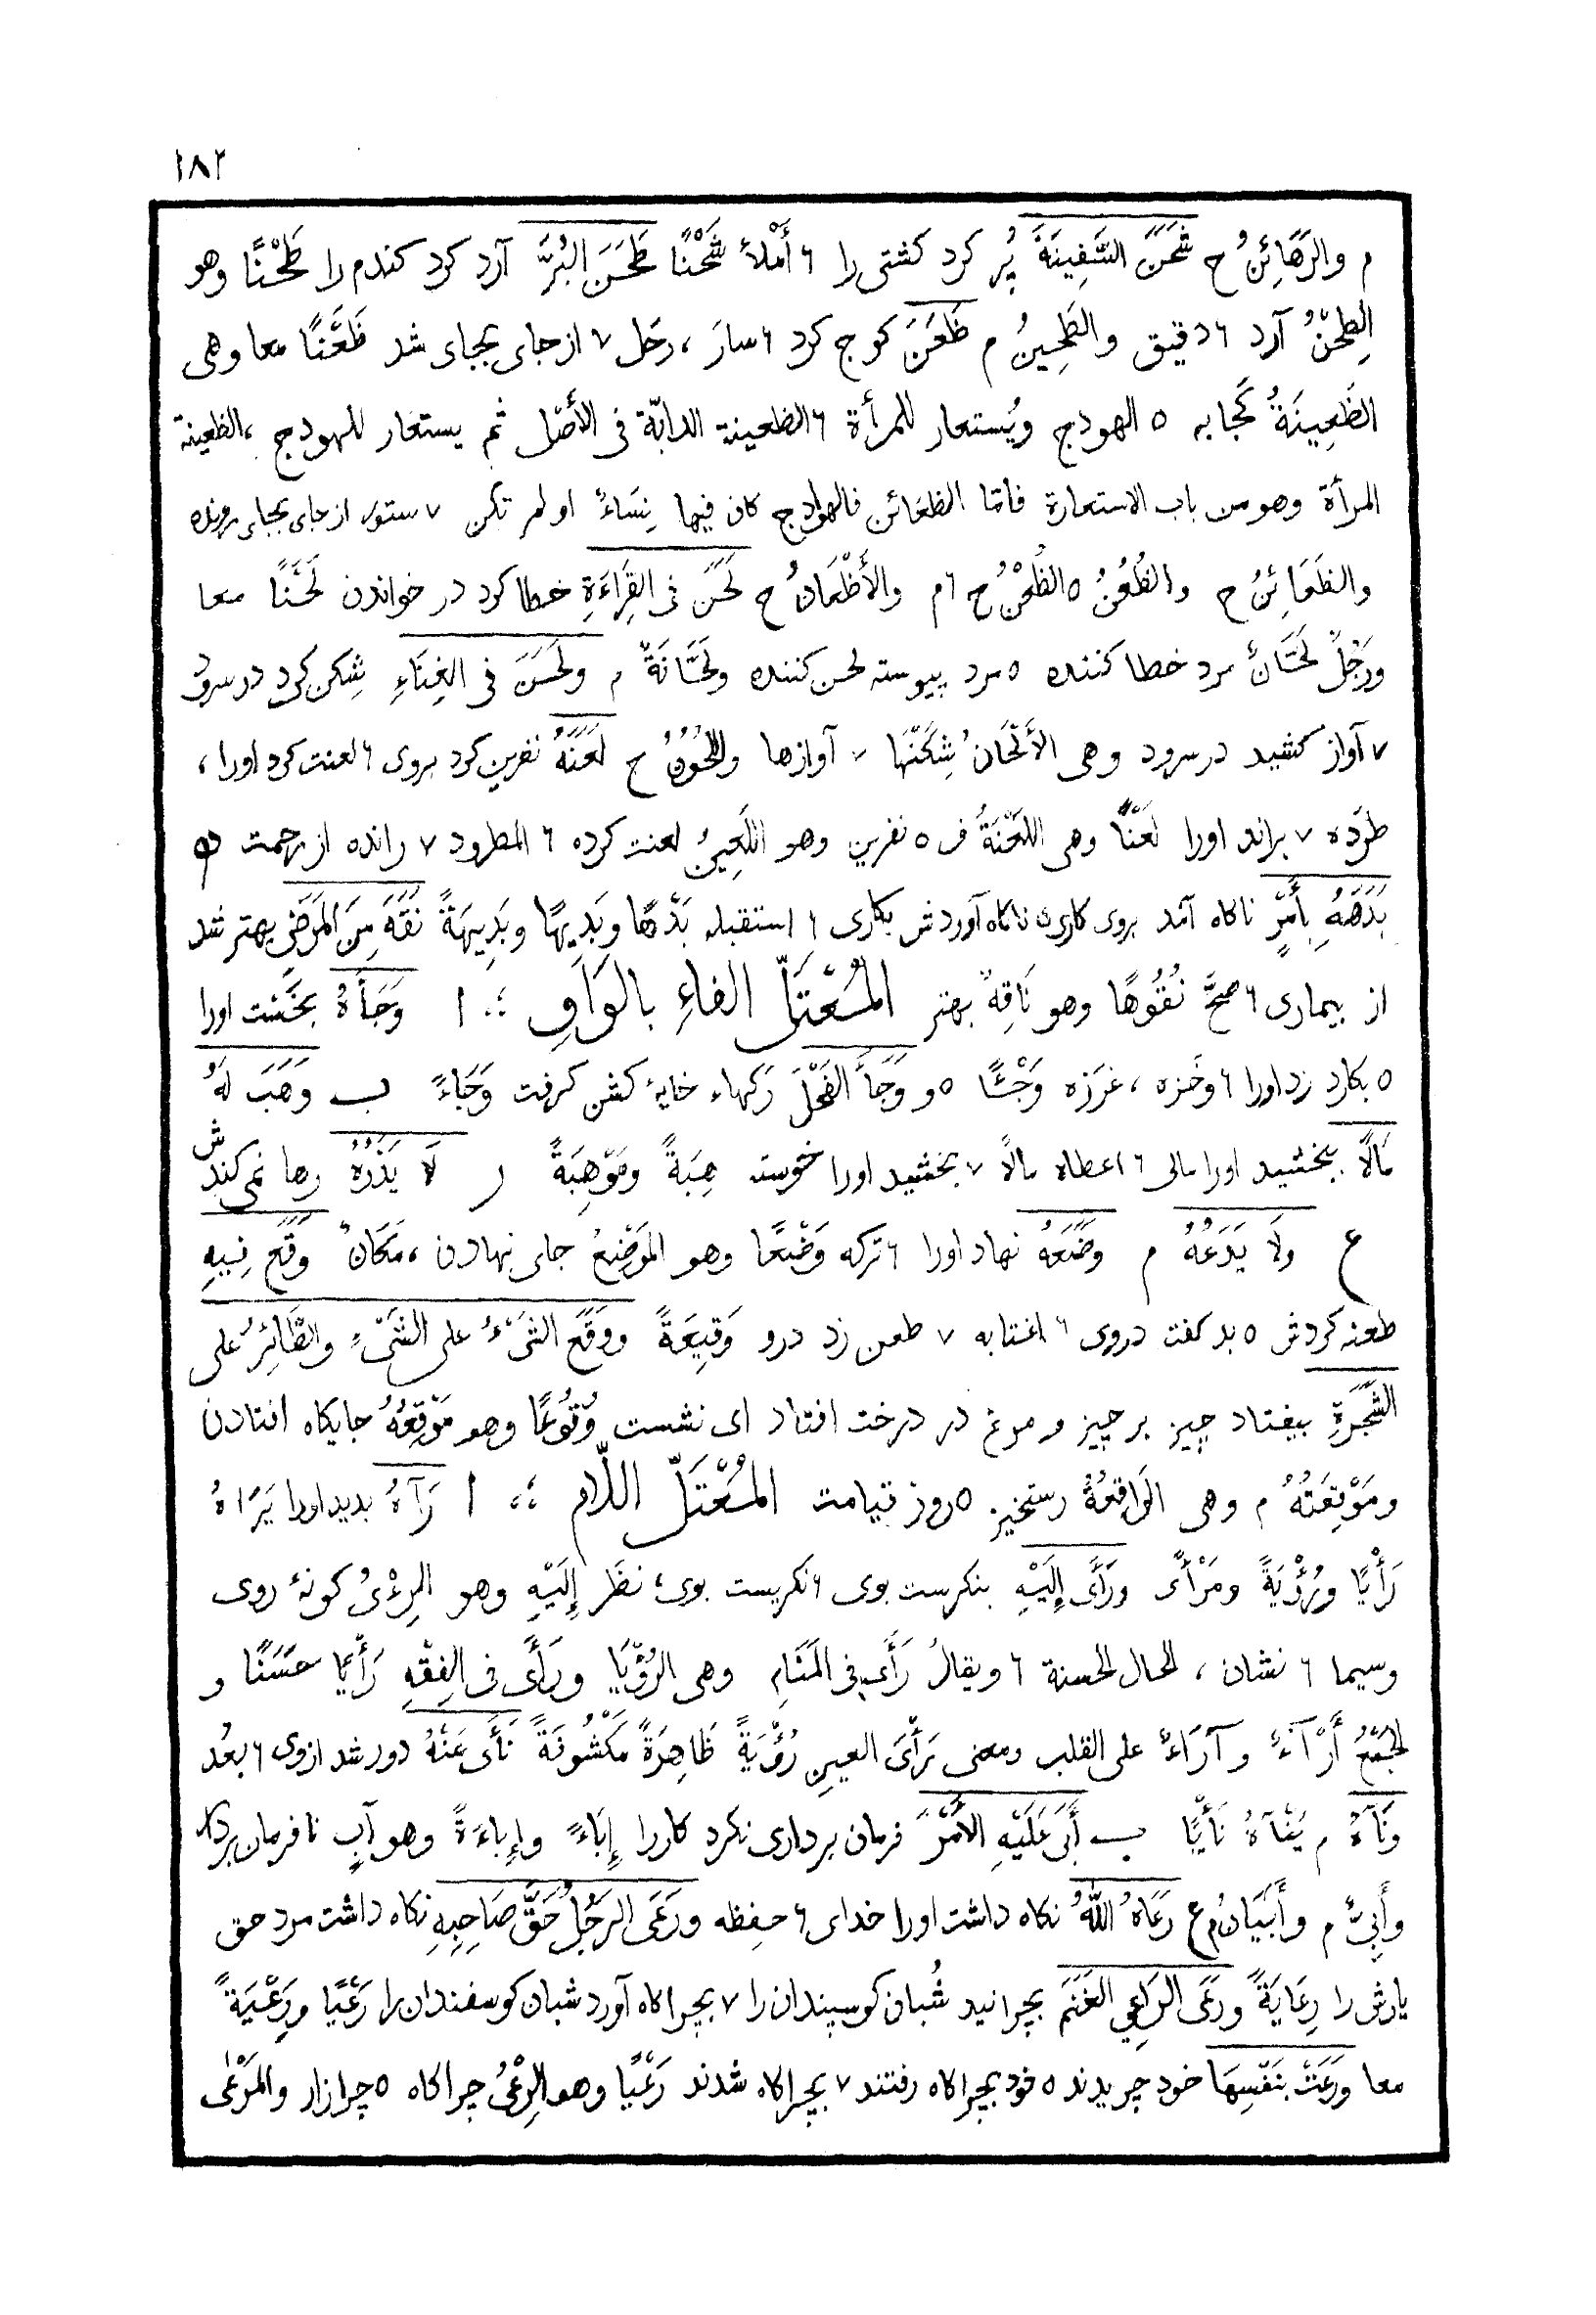 ١٨٢
م والرَّهَائِنُ ح شَحَنَ السَّفِينَةَ پُر کرد کشتی را ۶ أَمْلأَ شَحْنًا طَحَنَ البُرَّ آرد کرد کندم را طَحْنًا وهو
الطِحْنُ آرد ۶ دقیق والطَحِينُ م ظَعَنَ کوچ کرد ۶ سارَ ، رحَل ۷ از جای بجای شد ظَعْنًا معا وهی
الظَعِينَةُ کجابه ٥ الهودج ويُستعار للمرأة ۶ الظعينة الدابّة فى الأصل ثم يستعار للهودج ، الظعينة
المرأة وهو من باب الاستعارة فامّا الظعائن فالهوادج كان فيها نِسَاءٌ او لم تكن ۷ ستور از جای بجای رونده
والظَعَائِنُ ح والظُعُنُ ٥ الظُعْنُ ح ۶ م والأَظْعَانُ ح لَحَنَ فى القِرَاءَةِ خطا کرد در خواندن لَحْنًا معا
ورَجُلٌ لَحَّانٌ مرد خطا کننده ٥ مرد پیوسته لحن کننده ولَحَّانَةٌ م ولَحَنَ فى الغِنَاءِ شِکن کرد در سرود
۷ آواز کشید در سرود وهی الأَلْحَانُ شِکَنّها ۷ آوازها واللُحُونُ ح لَعَنَهُ نفرین کرد بروی ۶ لعنت کرد اورا ،
طرَده ۷ براند اورا لَعْنًا وهى اللَعْنَةُ ف ٥ نفرین وهو اللَعِينُ لعنت کرده ۶ المطرود ۷ رانده از رحمت ه
بَدَهَهُ بِأَمْرٍ ناکاه آمد بروی کاری ٥ ناکاه آوردش بکاری ۶ استقبله بَدْهًا وبَدِيهًا وبَدِيهَةً نَقَهَ مِنَ المَرَضِ بهتر شد
از بیماری ۶ صحَّ نُقُوهًا وهو نَاقِهٌ بهتر المُعْتَلّ الفاءِ بالوَاوِ ا وَجَأَهُ بخَست اورا
٥ بکارد زد اورا ۶ وخَزه ، غرَزه وَجْئًا ٥ و وَجَأَ الفَحْلَ رَکهاء خایهٔ کشن کرفت وَجَاءً ب وَهَبَ لَهُ
مَالًا ببخشید اورا مالی ۶ اعطاه مالًا ۷ بخشید اورا خوسته هِبَةً ومَوْهِبَةً ر لَا يَذَرُهُ رها نمی کندش
ع ولَا يَدَعُهُ م وضَعَهُ نهاد اورا ۶ تركه وَضْعًا وهو المَوْضِعُ جای نهادن ، مَكَانٌ وَقَعَ فِيهِ
طعنه کردش ٥ بد کفت در وی ۶ اغتابه ۷ طعن زد درو وَقِيعَةً ووَقَعَ الشَىْءُ على الشَىْءِ والطَائِرُ على
الشَجَرَةِ بیفتاد چیز بر چیز و مرغ در درخت افتاد ای نشست وُقُوعًا وهو مَوْقِعُهُ جایکاه افتادن
ومَوْقِعَتُهُ م وهى الوَاقِعَةُ رستخیز ٥ روز قیامت المُعْتَلّ اللّام ا رَآهُ بدید اورا يَرَاهُ
رَأْيًا ورُؤْيَةً ومَرْأًى ورَأَى إِلَيْهِ بنکرست بوی ۶ نکریست بوی ، نظَر إِلَيْهِ وهو الرِءْىُ کونهٔ روی
وسیما ۶ نشان ، الحال الحسنة ۶ ويقالُ رَأَى فى المَنَامِ وهى الرُؤْيَا ورَأَى فى الفِقْهِ رَأْيًا حسَنًا و
الجَمْعُ أَرْآءٌ وآرَاءٌ على القلب ومعنى رَأْىَ العين رُؤْيَةً ظَاهِرَةً مَكْشُوفَةً نَأَى عَنْهُ دور شد ازوی ۶ بعُد
ونَآهُ م يَنْآهُ نَأْيًا ب أَبَى عَلَيْهِ الأَمْرَ فرمان برداری نکرد کاررا إِبَاءً وإِباءَةً وهو آبٍ نافرمان بردار
وأَبِىٌّ م وأَبَيَانٌ م ع رَعَاهُ اللّٰهُ نکاه داشت اورا خدای ۶ حفِظه ورَعَى الرَجُلُ حَقَّ صَاحِبِهِ نکاه داشت مرد حق
یارش را رِعَايَةً ورَعَى الرَاعِي الغَنَمَ بچرانید شُبان کوسپندان را ۷ بچراکاه آورد شبان کوسفندان را رَعْيًا ورِعْيَةً
معا ورَعَتْ بِنَفْسِهَا خود چریدند ٥ خود بچراکاه رفتند ۷ بچراکاه شدند رَعْيًا وهو الرِعْىُ چراکاه ٥ چرازار والمَرْعَى